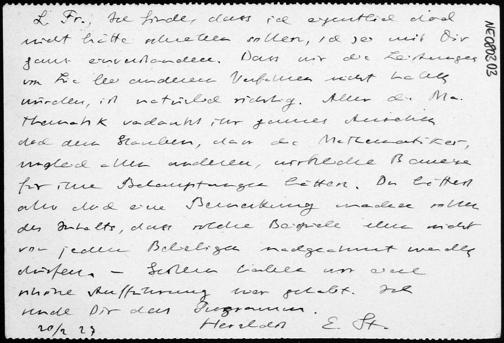 L. Fr., Ich finde, dass ich eigentlich doch
nicht hätte schreiben sollen, ich sei mit Dir
ganz einverstanden. Dass wir die Leistungen
von Lie bei anderem Verfahren nicht hätten
würden, ist natürlich richtig. Aber die Ma-
thematik verdankt ihr ganzes Ansehen
doch dem Glauben, dass die Mathematiker,
ungleich allen anderen, wirkliche Beweise
für ihre Behauptungen hätten. Du hättest
also doch eine Bemerkung machen sollen
des Inhalts, dass solche Beispiele eben nicht
von jedem Beliebigen nachgeahmt werden
dürfen. – Gestern haben wir eine
schöne Aufführung hier gehabt. Ich
sende Dir das Programm.
20/2 27 Herzlichst E. St.
NE080203